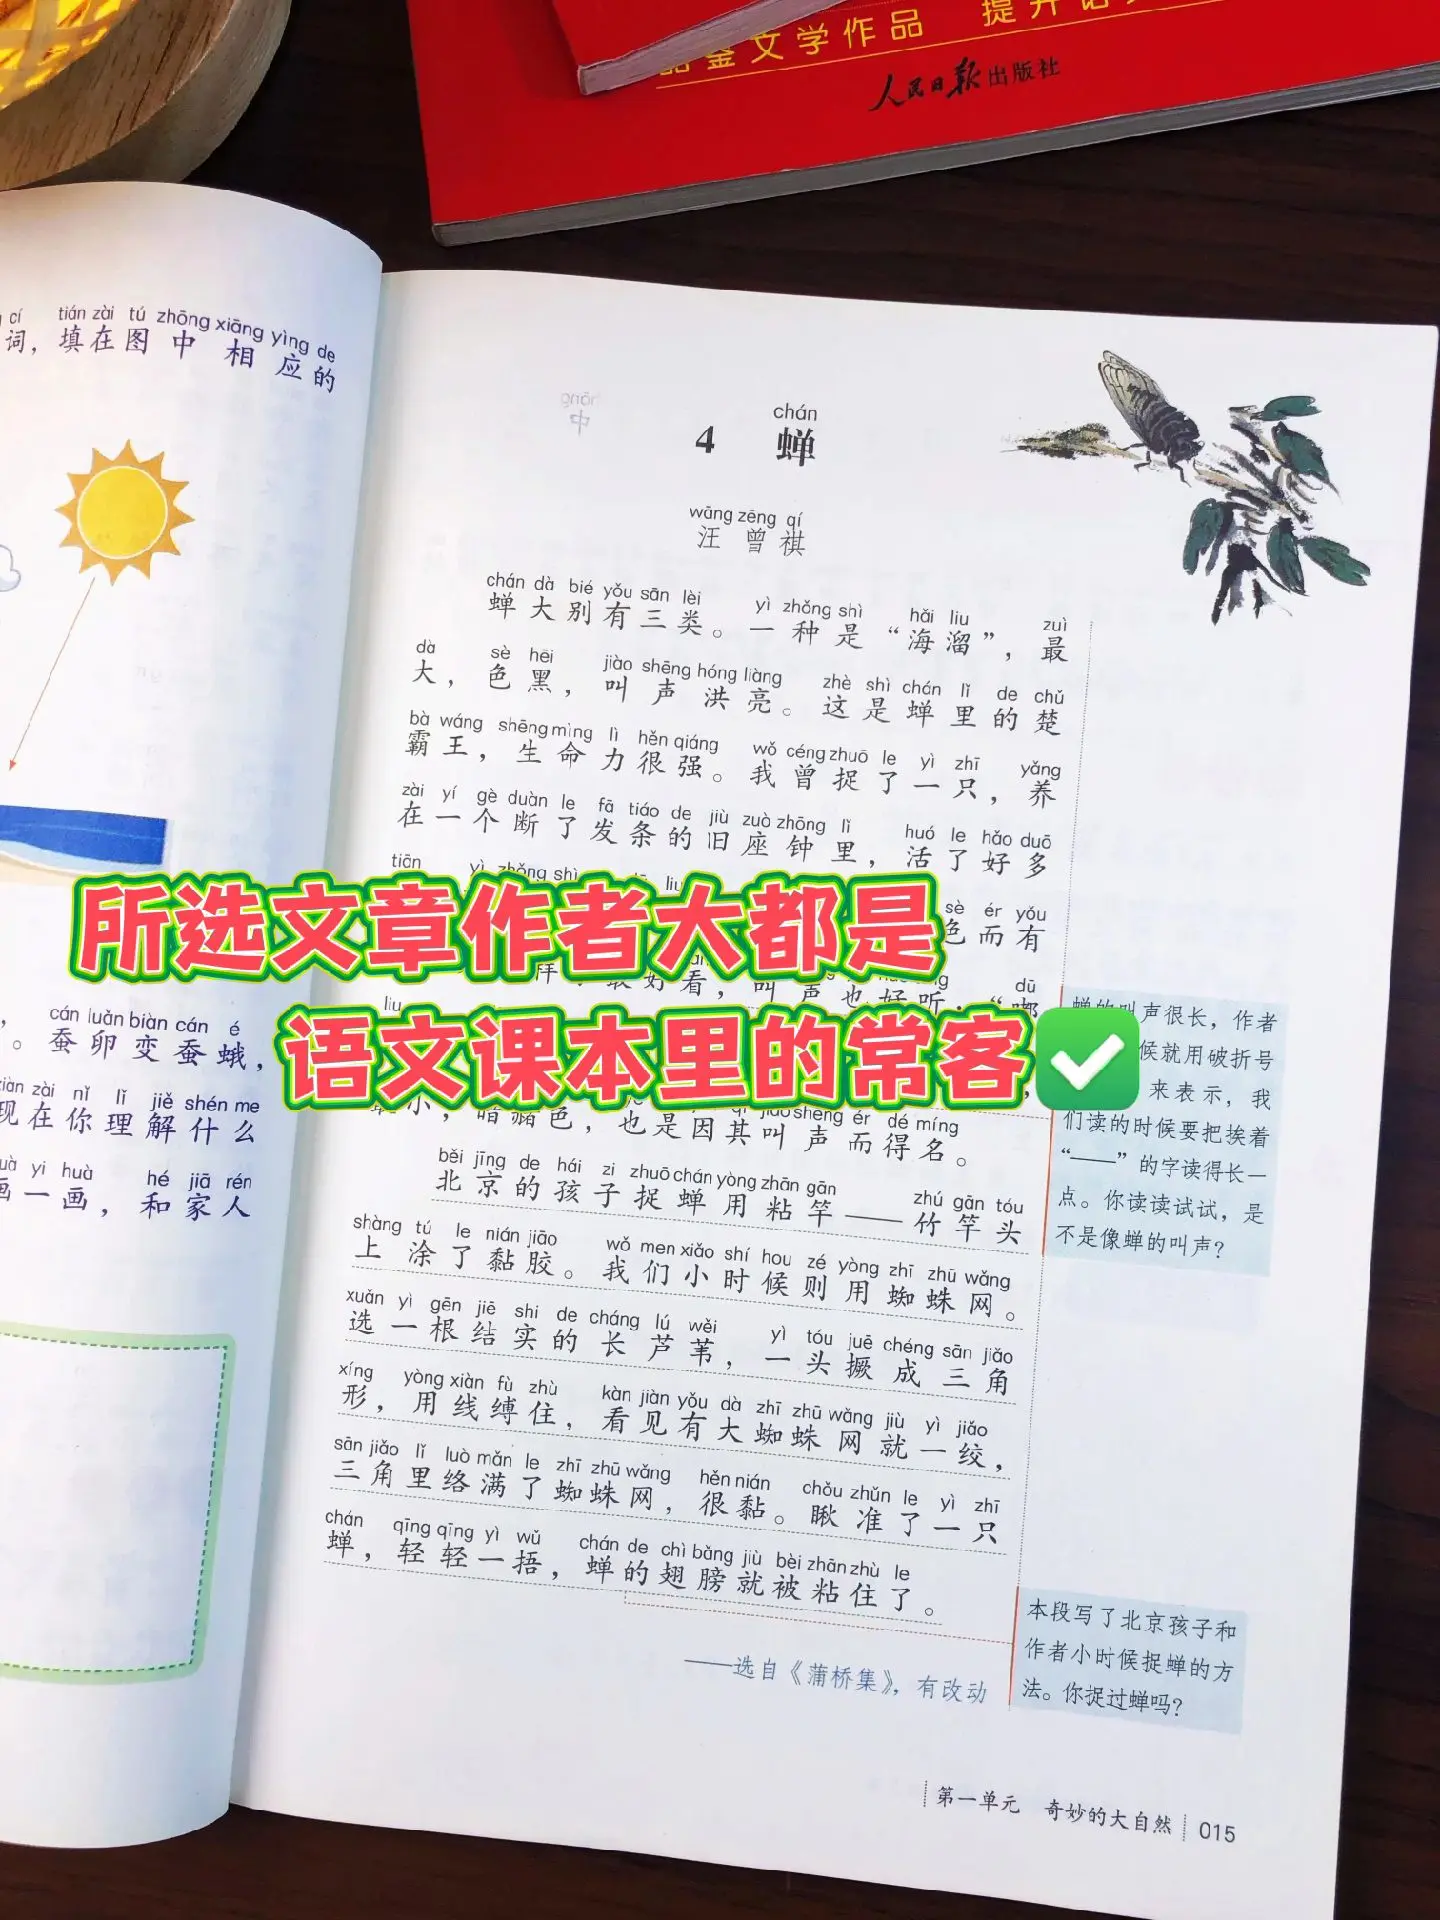 品鉴文学作品 提升语
人民日报出版社
cí tián zài tú zhōng xiāng yìng de
词，填在图中相应的
cán luǎn biàn cán é
。蚕卵变蚕蛾，
xiàn zài nǐ lǐ jiě shén me
现在你理解什么
huà yi huà hé jiā rén
画一画，和家人
chán
4 蝉
wāng zēng qí
汪曾祺
chán dà bié yǒu sān lèi yì zhǒng shì hǎi liu zuì
蝉大别有三类。一种是“海溜”，最
dà sè hēi jiào shēng hóng liàng zhè shì chán lǐ de chǔ
大，色黑，叫声洪亮。这是蝉里的楚
bà wáng shēng mìng lì hěn qiáng wǒ céng zhuō le yì zhī yǎng
霸王，生命力很强。我曾捉了一只，养
zài yí gè duàn le fā tiáo de jiù zuò zhōng lǐ huó le hǎo duō
在一个断了发条的旧座钟里，活了好多
tiān yì zhǒng shì liu
sè ér yǒu
色而有
所选文章作者大都是
dū
好看，叫声也好听，“嘟
liu
语文课本里的常客
qí jiào shēng ér dé míng
最小，暗赭色，也是因其叫声而得名。
běi jīng de hái zi zhuō chán yòng zhān gān zhú gān tóu
北京的孩子捉蝉用粘竿——竹竿头
shàng tú le nián jiāo wǒ men xiǎo shí hou zé yòng zhī zhū wǎng
上涂了黏胶。我们小时候则用蜘蛛网。
xuǎn yì gēn jiē shi de cháng lú wěi yì tóu juē chéng sān jiǎo
选一根结实的长芦苇，一头撅成三角
xíng yòng xiàn fù zhù kàn jiàn yǒu dà zhī zhū wǎng jiù yì jiǎo
形，用线缚住，看见有大蜘蛛网就一绞，
sān jiǎo lǐ luò mǎn le zhī zhū wǎng hěn nián chǒu zhǔn le yì zhī
三角里络满了蜘蛛网，很黏。瞅准了一只
chán qīng qīng yì wǔ chán de chì bǎng jiù bèi zhān zhù le
蝉，轻轻一捂，蝉的翅膀就被粘住了。
——选自《蒲桥集》，有改动
蝉的叫声很长，作者
候就用破折号
来表示，我
们读的时候要把挨着
“——”的字读得长一
点。你读读试试，是
不是像蝉的叫声？
本段写了北京孩子和
作者小时候捉蝉的方
法。你捉过蝉吗？
第一单元 奇妙的大自然 015